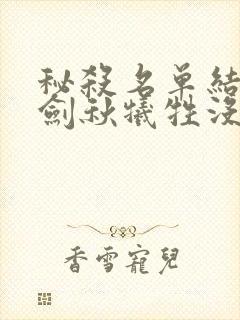 秘殺名单結
劍秋犧牲沒
香雪寵兒